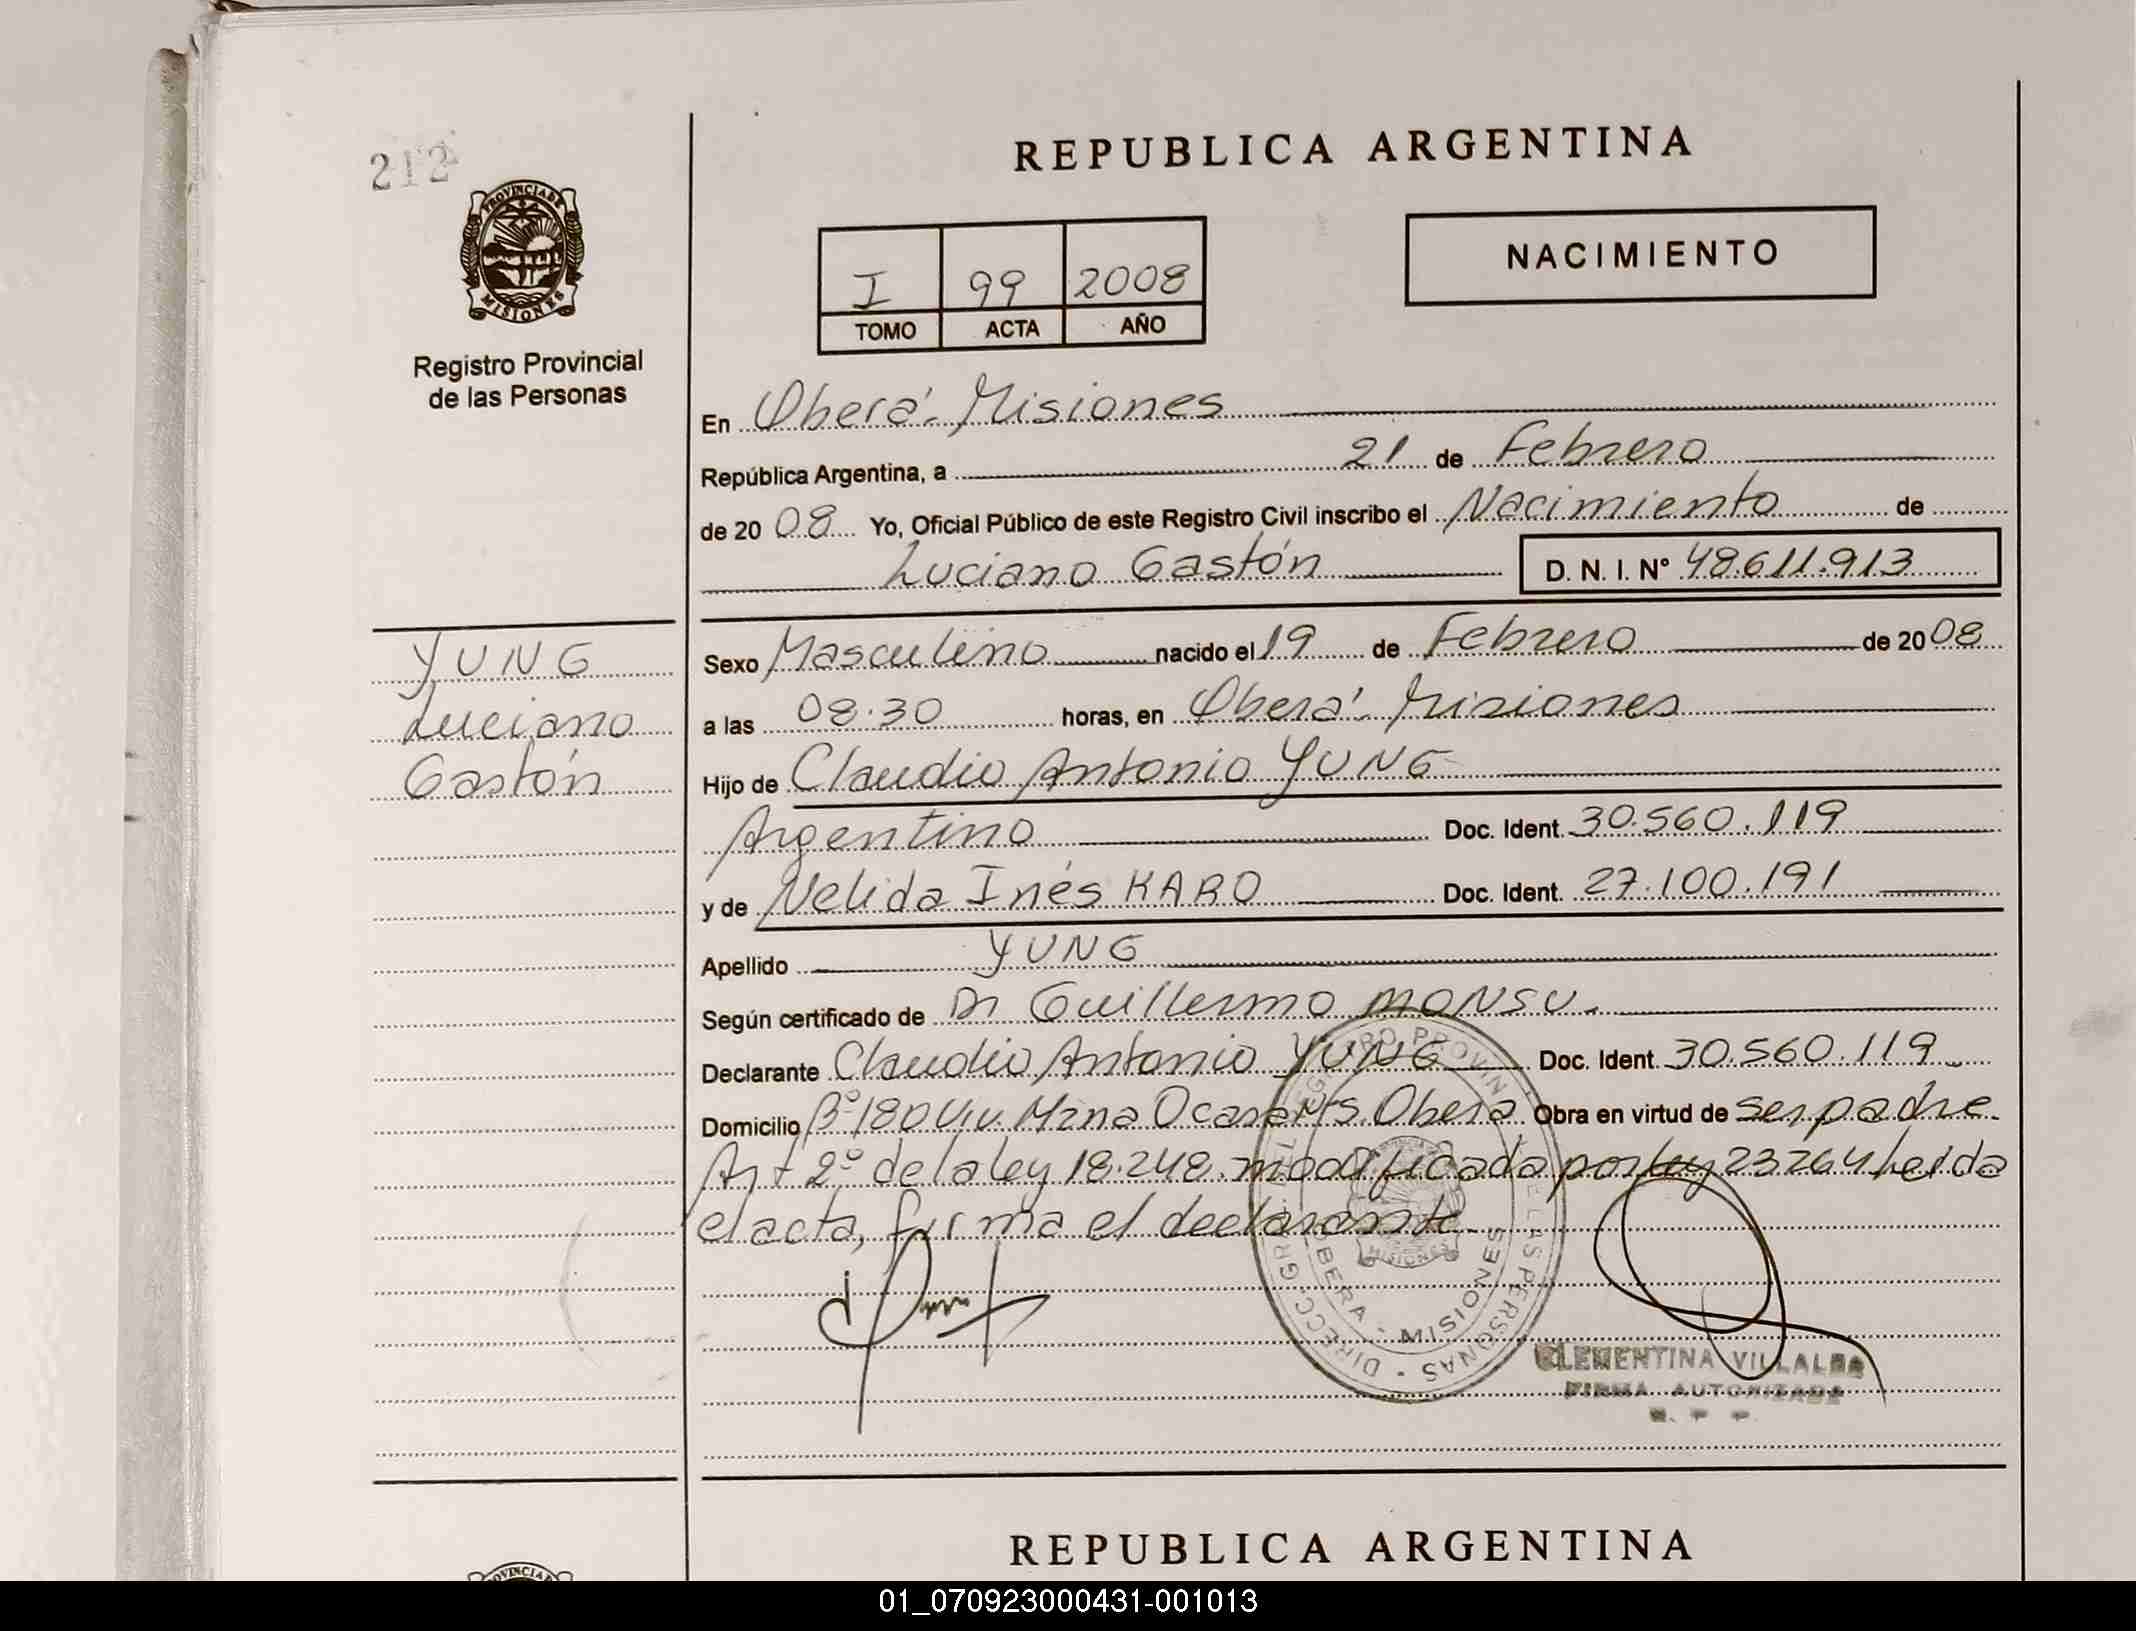 212
PROVINCIA DE
MISIONES
Registro Provincial
de las Personas
REPUBLICA ARGENTINA
NACIMIENTO
I 99 2008
TOMO ACTA AÑO
En Oberá. Misiones
República Argentina, a 21 de Febrero
de 20 08 Yo, Oficial Público de este Registro Civil inscribo el Nacimiento de
Luciano Gastón D. N. I. N° 48.611.913
YUNG
Luciano
Gastón
Sexo Masculino nacido el 19 de Febrero de 20 08
a las 08.30 horas, en Oberá. Misiones
Hijo de Claudio Antonio YUNG
Argentino Doc. Ident. 30.560.119
y de Nelida Inés KARO Doc. Ident. 27.100.191
Apellido YUNG
Según certificado de Dr Guillermo MONSU.
Declarante Claudio Antonio YUNG Doc. Ident. 30.560.119
Domicilio Bº 180 Viv. Mzna O Obera Obra en virtud de ser padre
Art 2º de la ley 18.248. modificada por ley 23264 leida
el acta, firma el declarante
OBERA - MISIONES
MISIONES
CLEMENTINA VILLALBA
FIRMA AUTORIZADA
REPUBLICA ARGENTINA
PROVINCIA DE
01_070923000431-001013